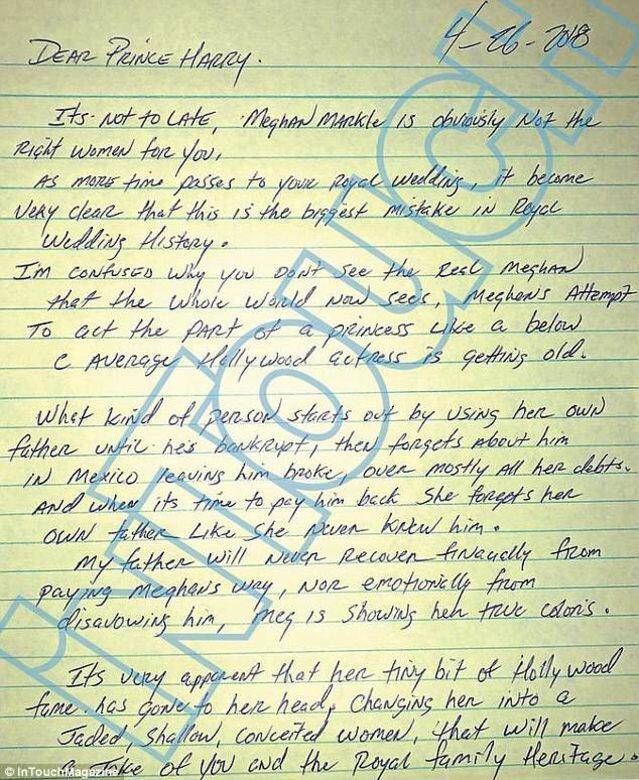 4-26-2018
DEAR PRINCE HARRY.
ITS. NOT TO LATE, MEGHAN MARKLE IS obviously Not the
Right women for you,
AS MORE time passes to your Royal wedding, it became
very clear that this is the biggest mistake in Royal
Wedding History.
I'm confused why you don't see the real Meghan
that the whole world now sees, Meghan's Attempt
To act the PART of a princess like a below
C average Hollywood actress is getting old.
What kind of person starts out by using her own
father until he's bankrupt, then forgets about him
IN Mexico leaving him broke, over mostly all her debts.
AND when its time to pay him back she forgets her
own father like she never knew him.
My father will never recover finacially from
paying Meghans way, NOR emotionally from
disavowing him, Meg is showing her true colors.
It's very apparent that her tiny bit of Hollywood
fame has gone to her head, Changing her into a
Jaded, Shallow, conceited women, that will make
a Joke of you and the Royal family Heritage.
InTouch
© InTouchMagazine